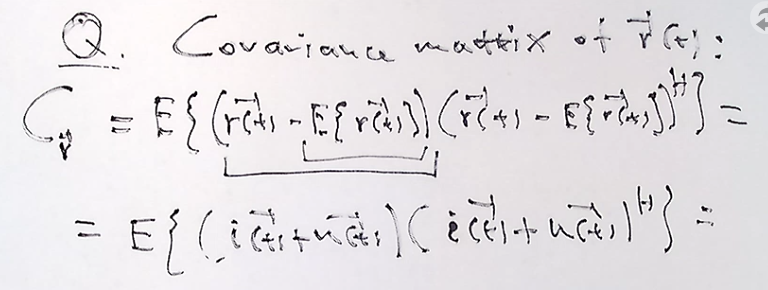 Q. Covariance matrix of r⃗(t):
C_r = E{(r⃗(t) - E{r⃗(t)})(r⃗(t) - E{r⃗(t)})^H} =
= E{(i⃗(t)+n⃗(t))(i⃗(t)+n⃗(t))^H} =